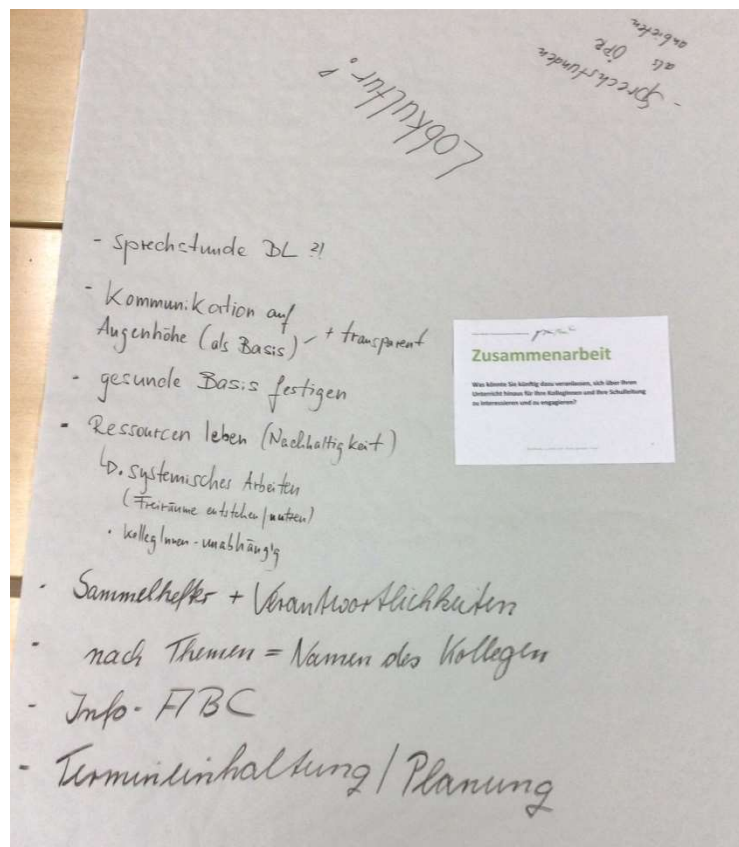 - Sprechstunden
als ÖPR
anbieten
Lobkultur!
- Sprechstunde DL ?!
- Kommunikation auf
Augenhöhe (als Basis) + transparent
- gesunde Basis festigen
- Ressourcen leben (Nachhaltigkeit)
• systemisches Arbeiten
(Freiräume entstehen/nutzen)
• KollegInnen-unabhängig
- Sammelhefter + Verantwortlichkeiten
- nach Themen = Namen des Kollegen
- Info-ABC
- Termineinhaltung / Planung
Zusammenarbeit
Was könnte Sie künftig dazu veranlassen, sich über Ihren
Unterricht hinaus für Ihre KollegInnen und Ihre Schulleitung
zu interessieren und zu engagieren?